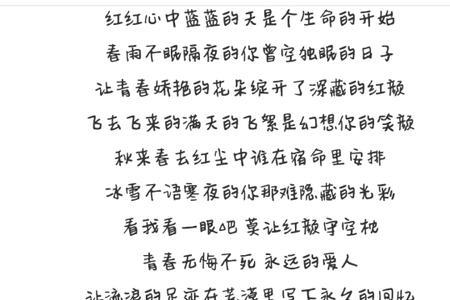 红红心中蓝蓝的天是个生命的开始
春雨不眠隔夜的你曾空独眠的日子
让青春娇艳的花朵绽开了深藏的红颜
飞去飞来的满天的飞絮是幻想你的笑颜
秋来春去红尘中谁在宿命里安排
冰雪不语寒夜的你那难隐藏的光彩
看我看一眼吧 莫让红颜守空枕
青春无悔不死 永远的爱人
让流浪的足迹在荒漠里写下永久的回忆